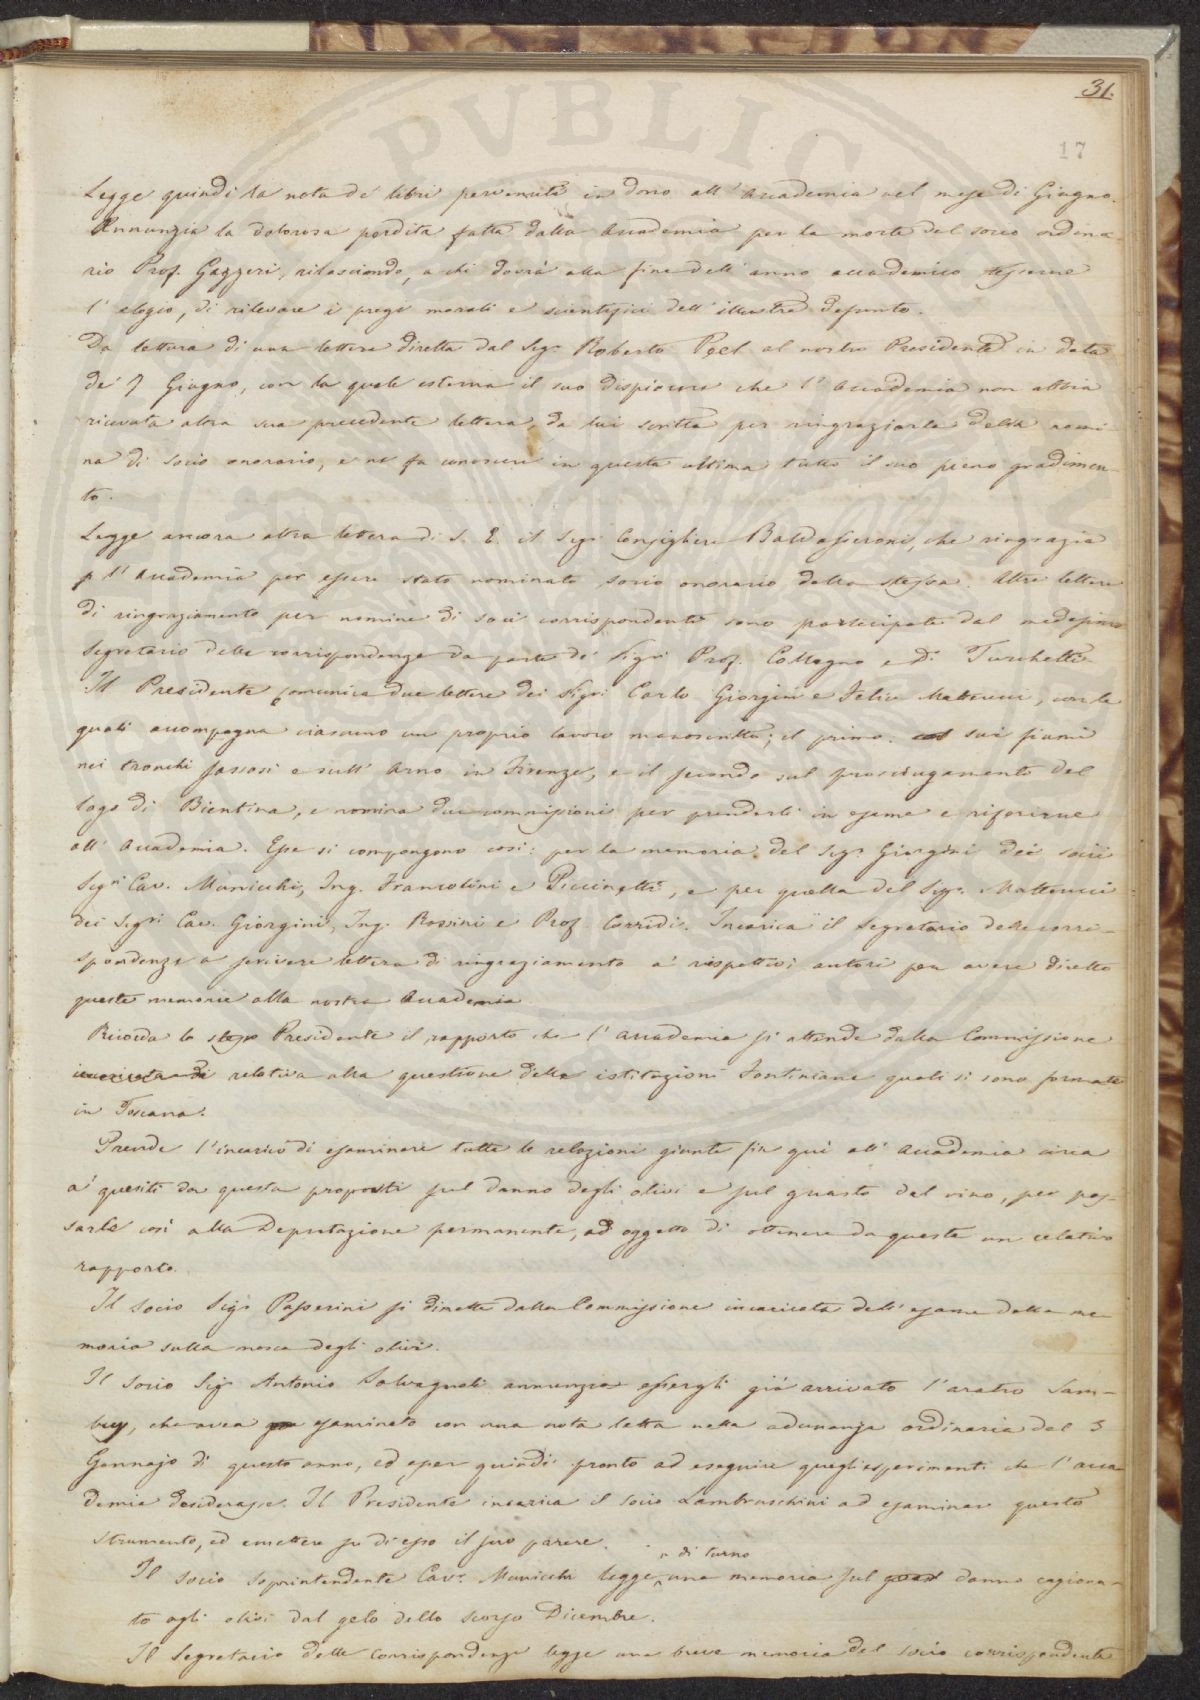 31.
17
PVBLIC
Legge quindi la nota de' libri pervenuti in dono all'Accademia nel mese di Giugno.
Annunzia la dolorosa perdita fatta dalla Accademia per la morte del socio ordina-
rio Prof. Gazzeri, rilasciando, a chi dovrà alla fine dell'anno accademico tesserne
l'elogio, di rilevare i pregi morali e scientifici dell'illustre defunto.
Da lettura di una lettera diretta dal Sigr. Roberto Peel al nostro Presidente in data
de' 7 Giugno, con la quale esterna il suo dispiacere che l'Accademia non abbia
ricevuta altra sua precedente lettera, da lui scritta per ringraziarla della nomi-
na di socio onorario, e ne fa conoscere in questa ultima tutto il suo pieno gradimen-
to.
Legge ancora altra lettera di S. E. il Sigr. Consigliere Baldasseroni, che ringrazia
p l'Accademia per essere stato nominato socio onorario della stessa. Altre lettere
di ringraziamento per nomine di soci corrispondenti sono partecipate dal medesimo
Segretario delle corrispondenze da parte de' Sigri Prof. Collegno e Dr. Turchetti
Il Presidente comunica due lettere dei Sigri Carlo Giorgini e Felice Matteucci, con le
quali accompagna ciascuno un proprio lavoro manoscritto; il primo sui fiumi
nei tronchi sassosi e sull'Arno in Firenze, e il secondo sul prosciugamento del
lago di Bientina, e nomina due commissioni per prenderli in esame e riferirne
all'Accademia. Esse si compongono così: per la memoria del Sigr. Giorgini dei socii
Sigri Cav. Manicchi, Ing. Francolini e Piccinetti, e per quella del Sigr. Matteucci
dei Sigri Cav. Giorgini, Ing. Rossini e Prof. Corridi. Incarica il Segretario delle corri-
spondenze a scrivere lettera di ringraziamento a' rispettivi autori per avere diretto
queste memorie alla nostra Accademia.
Ricorda lo stesso Presidente il rapporto che l'Accademia si attende dalla Commissione
incaricata di relativa alla questione delle istituzioni Fontiniane quali si sono formate
in Toscana.
Prende l'incarico di esaminare tutte le relazioni giunte fin qui all'Accademia circa
a' quesiti da questa proposti sul danno degli olivi e sul guasto del vino, per pas-
sarle così alla Deputazione permanente, ad oggetto di ottenere da questa un relativo
rapporto.
Il socio Sigr. Passerini si dimette dalla Commissione incaricata dell'esame della me-
moria sulla mosca degli olivi.
Il socio Sigr. Antonio Salvagnoli annunzia essergli già arrivato l'aratro Sam-
buy, che avea esaminato con una nota letta nella adunanza ordinaria del 3
Gennajo di questo anno, ed esser quindi pronto ad eseguire quegli esperimenti che l'acca-
demia desiderasse. Il Presidente incarica il socio Lambruschini ad esaminar questo
strumento, ed emettere su di esso il suo parere.
di turno
Il socio soprintendente Cavr. Manicchi legge una memoria sul danno cagiona-
to agli olivi dal gelo dello scorso Dicembre.
Il Segretario delle corrispondenze legge una breve memoria del socio corrispondente